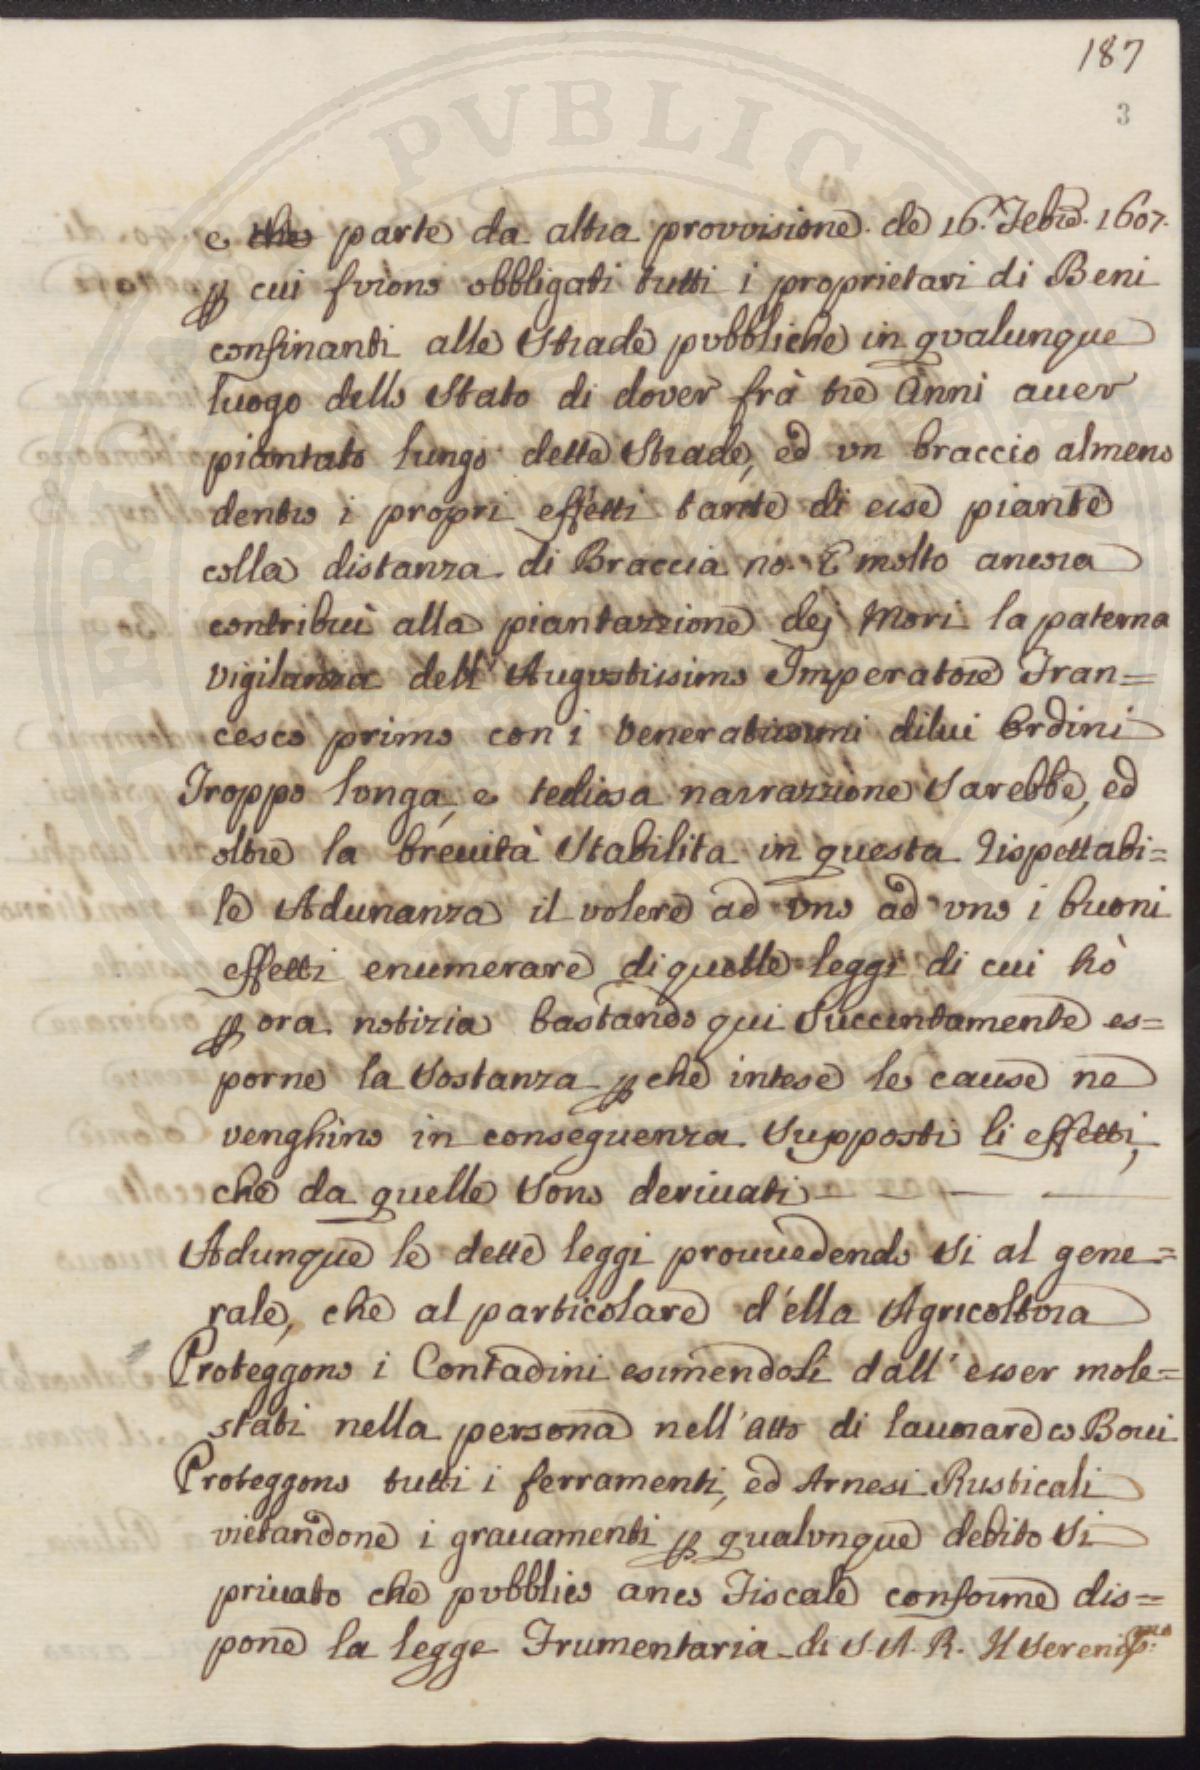 187
3
e che parte da altra provvisione de 16. Febre. 1607.
p cui furono obbligati tutti i proprietari di Beni
confinanti alle Strade pubbliche in qualunque
luogo dello Stato di dover frà tre Anni auer
piantato lungo dette Strade, ed vn braccio almeno
dentro i propri effetti tante di esse piante
colla distanza di Braccia no. E molto ancora
contribuì alla piantazzione dej Mori la paterna
vigilanza dell'Augustissimo Imperatore Fran=
cesco primo con i Veneratissimi dilui Ordini
Troppo longa, e tediosa narrazzione Sarebbe, ed
oltre la breuità Stabilita in questa Rispettabi=
le Adunanza il volere ad vno ad vno i buoni
effetti enumerare di quelle leggi di cui hò
p ora notizia bastando qui Succintamente es=
porne la Sostanza p che intese le cause ne
venghino in conseguenza Supposti li effetti,
che da quelle Sono deriuati
Adunque le dette leggi prouuedendo Si al gene=
rale, che al particolare d'ella Agricoltora
Proteggono i Contadini esimendoli dall'esser mole=
stati nella persona nell'atto di lauorare co Boui
Proteggono tutti i ferramenti, ed Arnesi Rusticali
vietandone i grauamenti p qualvnque debito Si
priuato che pvbblico anco Fiscale conforme dis=
pone la legge Frumentaria di S. A. R. Il Serenismo
PVBLIC